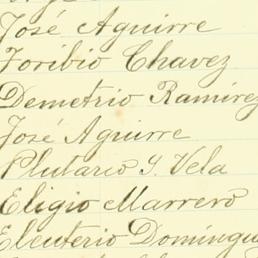 José Aguirre
Toribio Chavez
Demetrio Ramirez
José Aguirre
Plutarco Y. Vela
Eligio Marrero
Eleuterio Domíngu